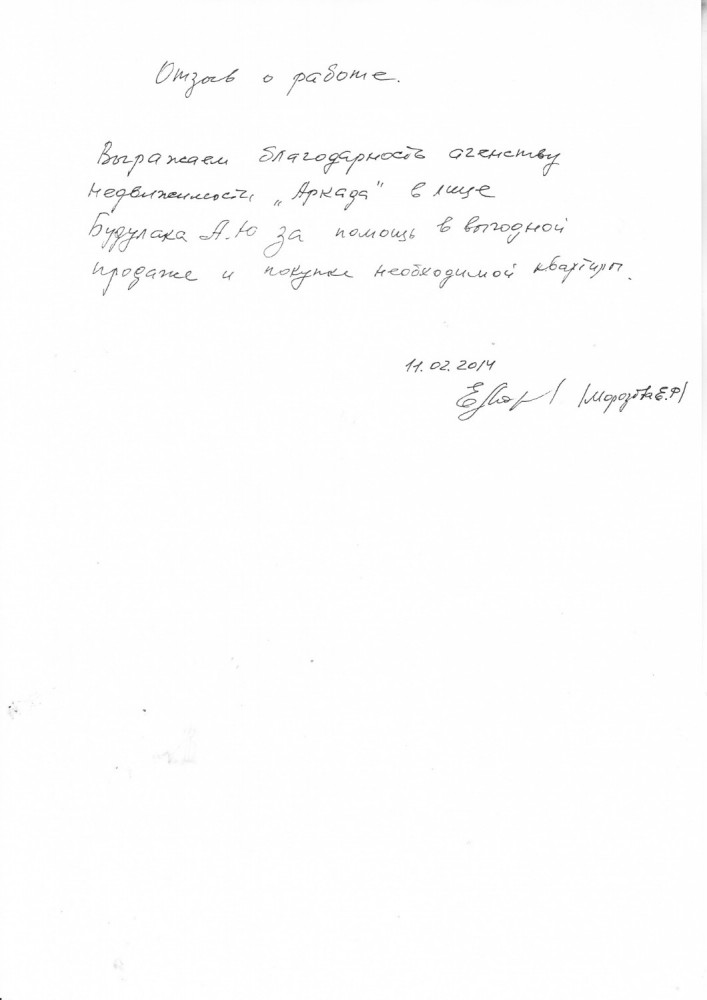 Отзыв о работе.
Выражаем благодарность агенству
недвижимости „Аркада" в лице
Будулака А.Ю за помощь в выгодной
продаже и покупке необходимой квартиры.
11.02.2014
/Морозова Е.Р/